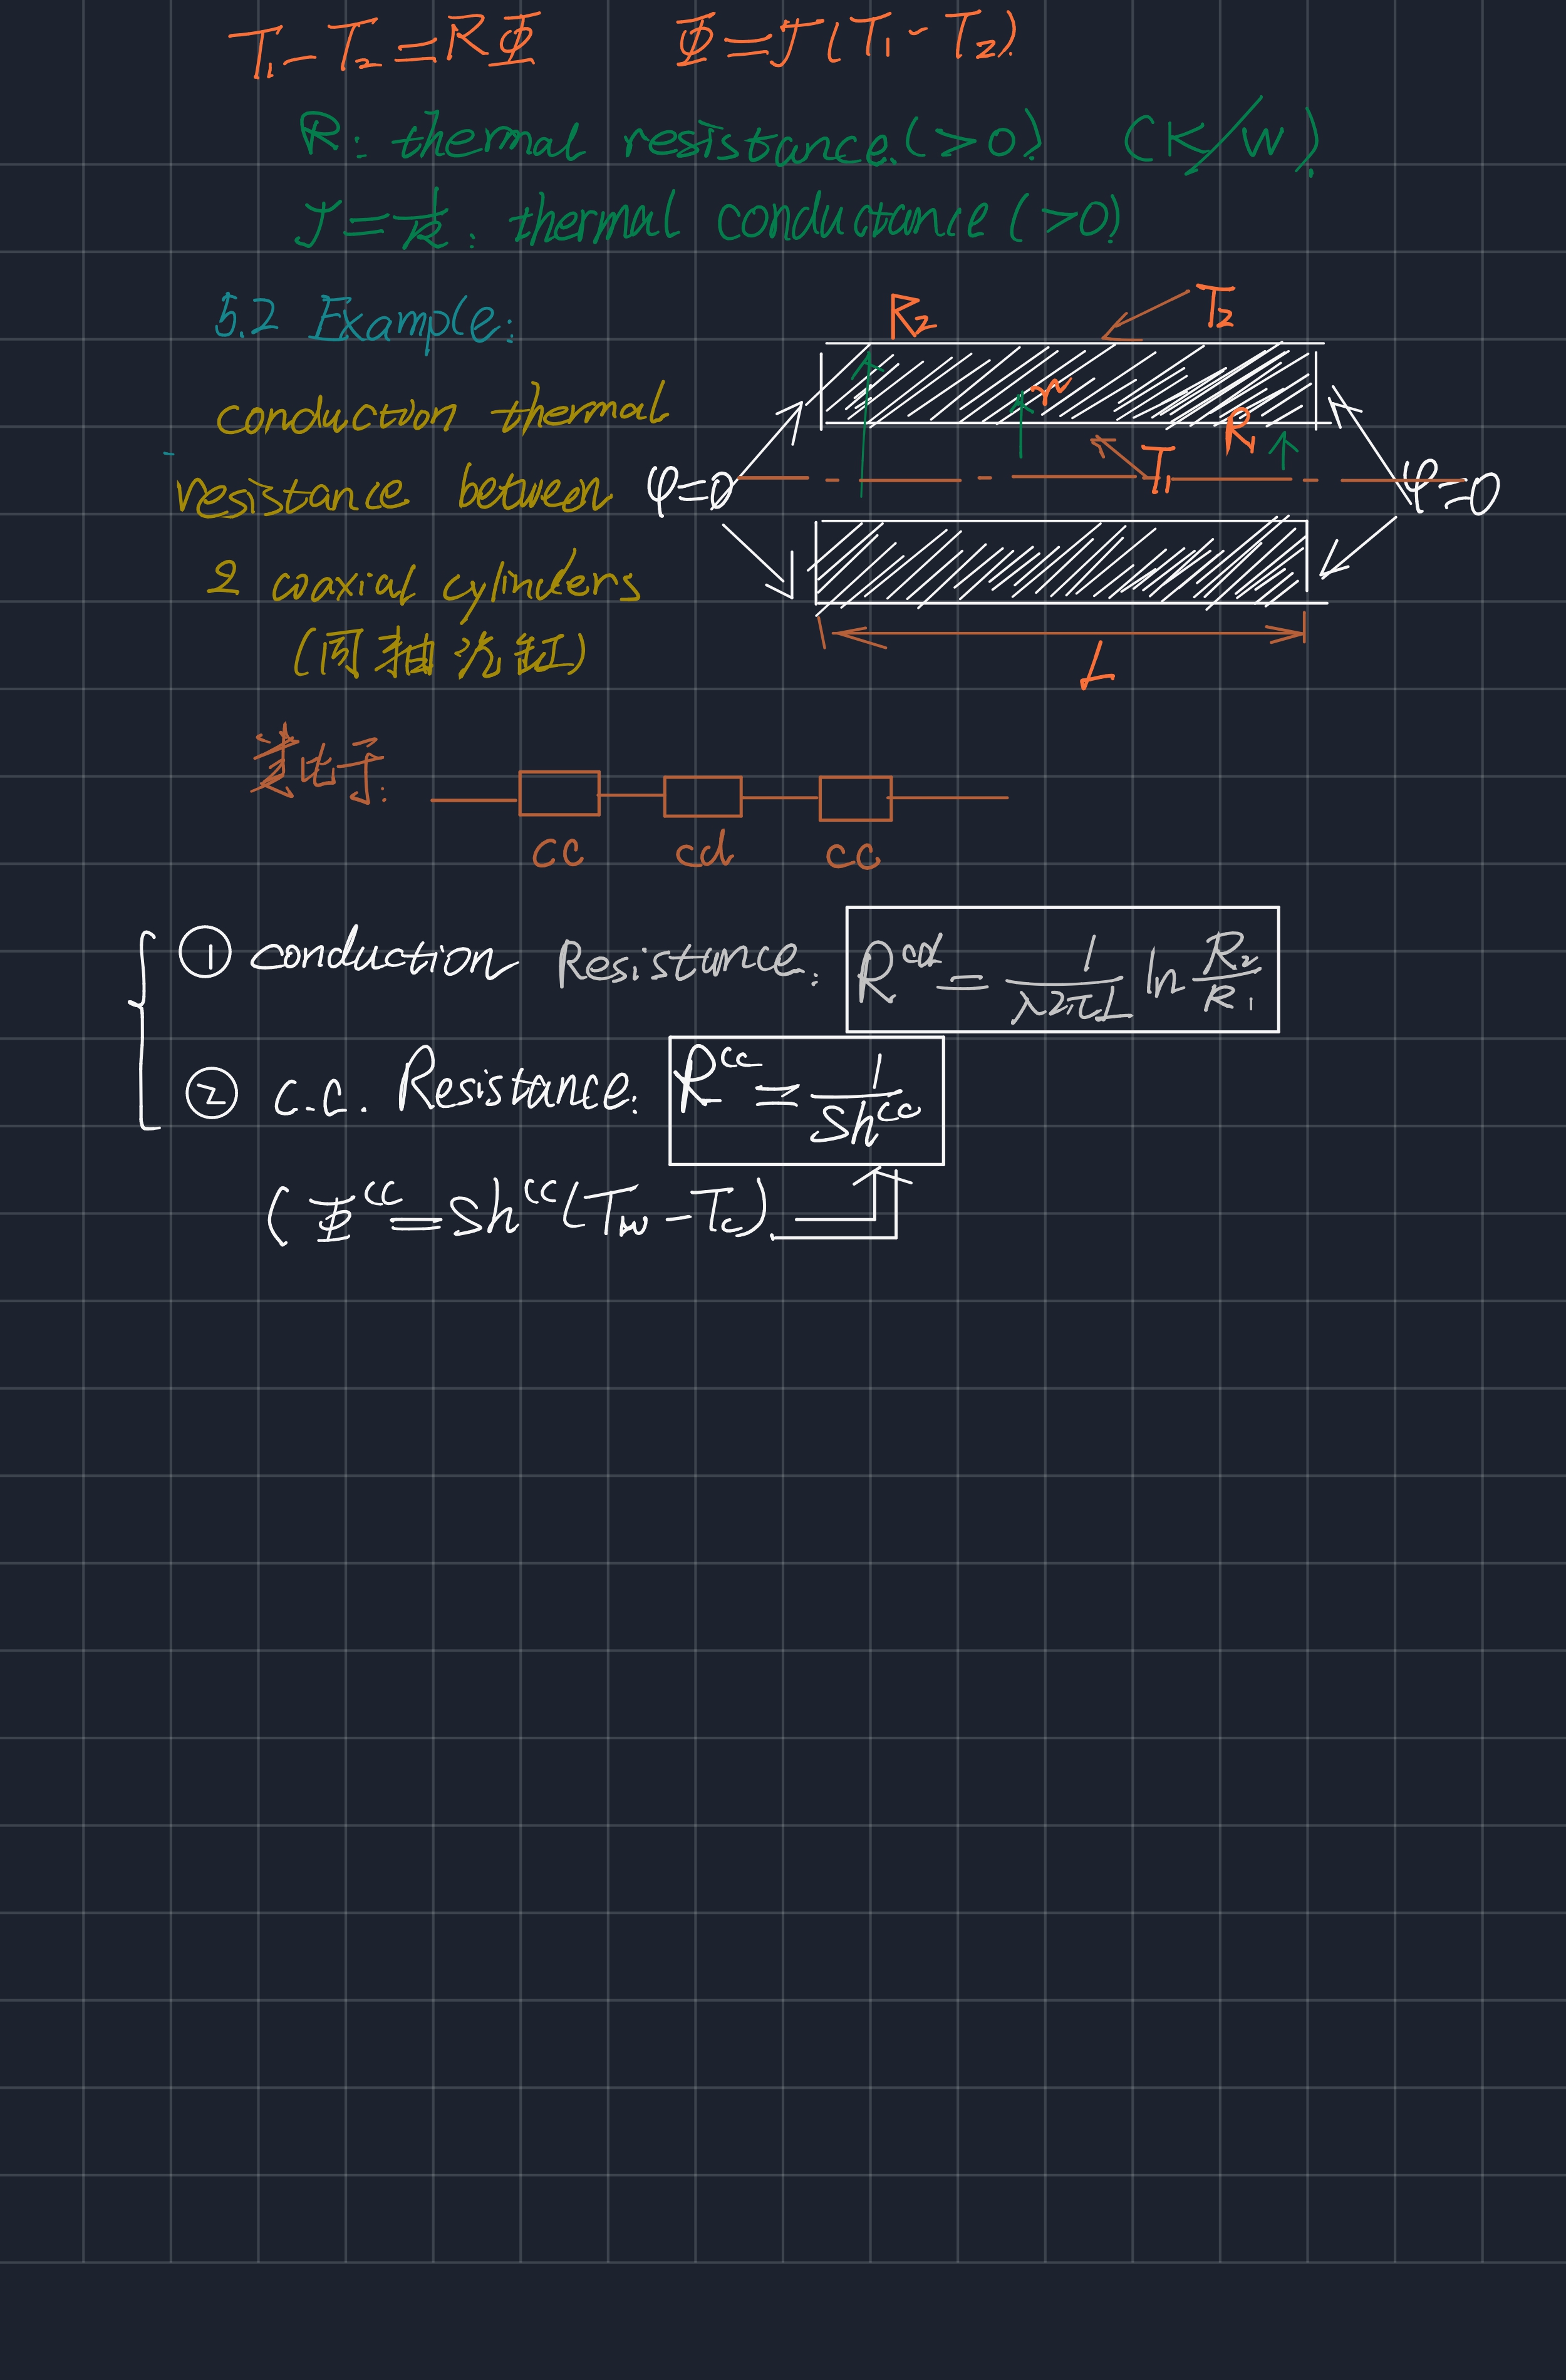 T₁-T₂=RΦ Φ=J(T₁-T₂)
R: thermal resistance.(>0) (K/W).
J=1/R: thermal conductance (>0)
5.2 Example:
R₂
T₂
conduction thermal
r
R₁
resistance between
φ=0
T₁
φ=0
2 coaxial cylinders
(同轴汽缸)
L
类比于:
cc cd cc
① conduction Resistance: R^cd = 1/(λ2πL) ln R₂/R₁
② c.c. Resistance: R^cc = 1/(Sh^cc)
(Φ^cc = Sh^cc(Tw-Tc).